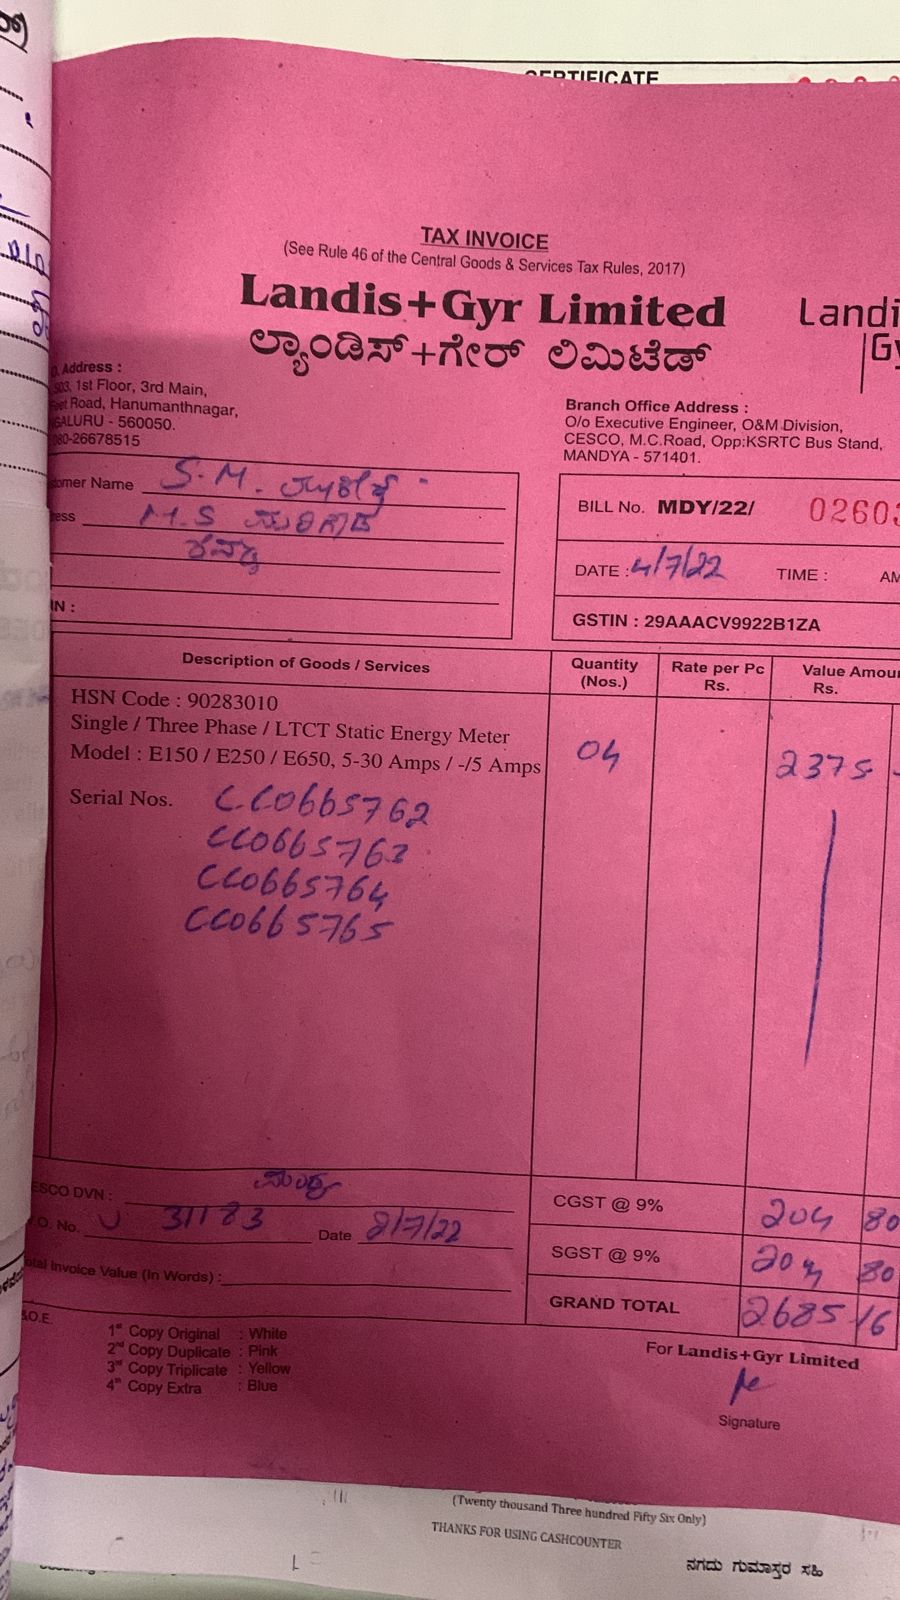 CERTIFICATE
TAX INVOICE
(See Rule 46 of the Central Goods & Services Tax Rules, 2017)
Landis+Gyr Limited
ಲ್ಯಾಂಡಿಸ್+ಗೇರ್ ಲಿಮಿಟೆಡ್
Landi
Gy
Address :
1st Floor, 3rd Main,
Road, Hanumanthnagar,
GALURU - 560050.
080-26678515
Branch Office Address :
O/o Executive Engineer, O&M Division,
CESCO, M.C.Road, Opp:KSRTC Bus Stand,
MANDYA - 571401.
tomer Name S.M.
ess M.S
IN :
BILL No. MDY/22/ 02603
DATE : 4/7/22 TIME : AM
GSTIN : 29AAACV9922B1ZA
Description of Goods / Services Quantity (Nos.) Rate per Pc Rs. Value Amou Rs.
HSN Code : 90283010
Single / Three Phase / LTCT Static Energy Meter
Model : E150 / E250 / E650, 5-30 Amps / -/5 Amps 04 2375
Serial Nos. CC0665762
CC0665763
CC0665764
CC0665765
ESCO DVN : ಮಂಡ್ಯ
.O. No. 31183 Date 8/7/22
tal Invoice Value (In Words) :
CGST @ 9% 204 80
SGST @ 9% 204 80
GRAND TOTAL 2685 16
.O.E.
1st Copy Original : White
2nd Copy Duplicate : Pink
3rd Copy Triplicate : Yellow
4th Copy Extra : Blue
For Landis+Gyr Limited
Signature
(Twenty thousand Three hundred Fifty Six Only)
THANKS FOR USING CASHCOUNTER
ನಗದು ಗುಮಾಸ್ತರ ಸಹಿ